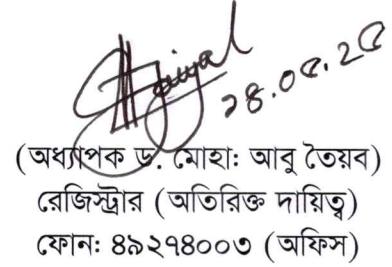 ২৪.০৫.২৫
(অধ্যাপক ড. মোহা: আবু তৈয়ব)
রেজিস্ট্রার (অতিরিক্ত দায়িত্ব)
ফোন: ৪৯২৭৪০০৩ (অফিস)